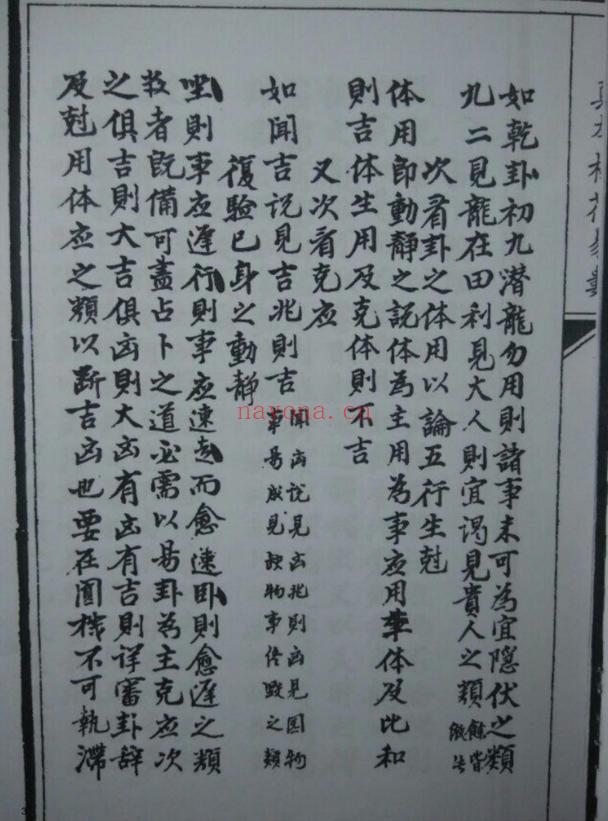 如乾卦初九潜龍勿用則諸事未可為宜隱伏之類
九二見龍在田利見大人則宜謁見貴人之類餘皆倣此
次看卦之体用以論五行生尅
体用即動靜之説体為主用為事应用体及比和
則吉体生用及克体則不吉
又次看克应
如聞吉说見吉兆則吉聞凶说見凶兆則凶見圆物
事易成見缺物事毁之類
復驗已身之動靜
坐則事应遲行則事应速走而愈速卧則愈遲之類
数者既備可盡占卜之道必需以易卦為主克应次
之俱吉則大吉俱凶則大凶有凶有吉則详審卦辞
及尅用体应之類以断吉凶也要在圓机不可執滯
nayona.cn